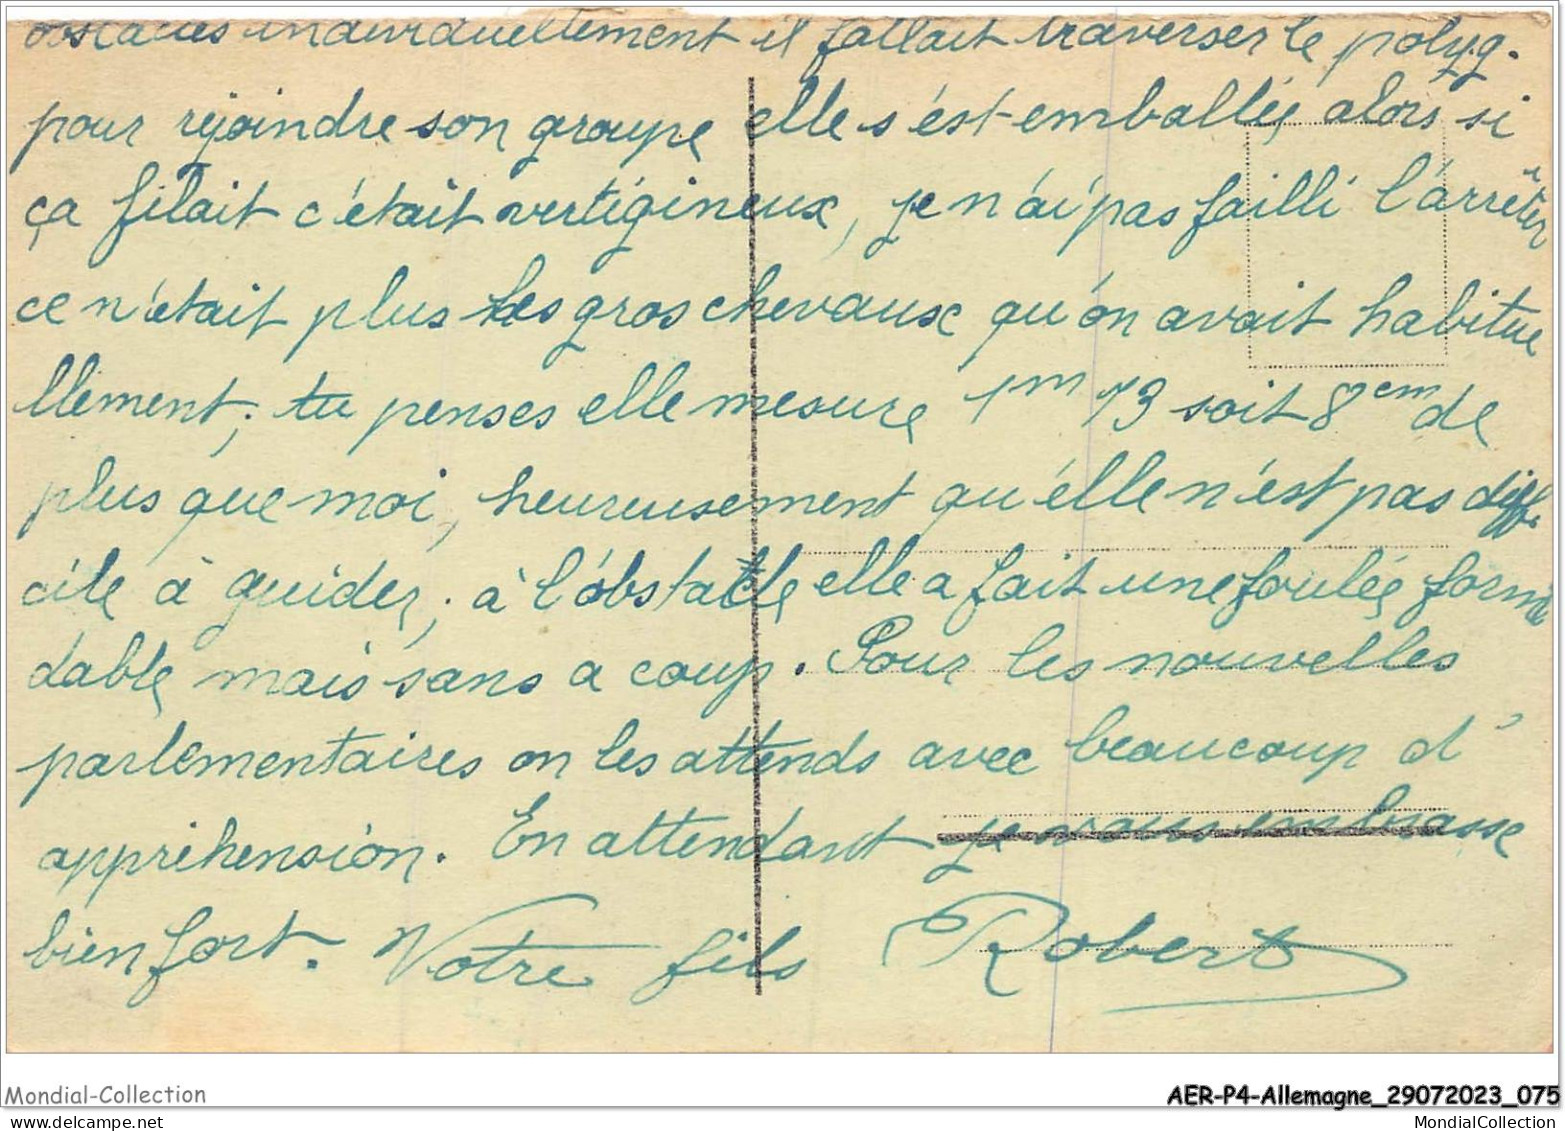 obstacles individuellement il fallait traverser le polyg.
pour rejoindre son groupe elle s'est emballée alors si
ça filait c'était vertigineux, je n'ai pas failli l'arrêter
ce n'était plus les gros chevaux qu'on avait habitue
llement; tu penses elle mesure 1m 73 soit 8cm de
plus que moi, heureusement qu'elle n'est pas diffi
cile à guider, à l'obstacle elle a fait une foulée formi
dable mais sans a coup. Pour les nouvelles
parlementaires on les attends avec beaucoup d'
appréhension. En attendant je vous embrasse
bien fort. Votre fils Robert
Mondial-Collection
AER-P4-Allemagne_29072023_075
MondialCollection